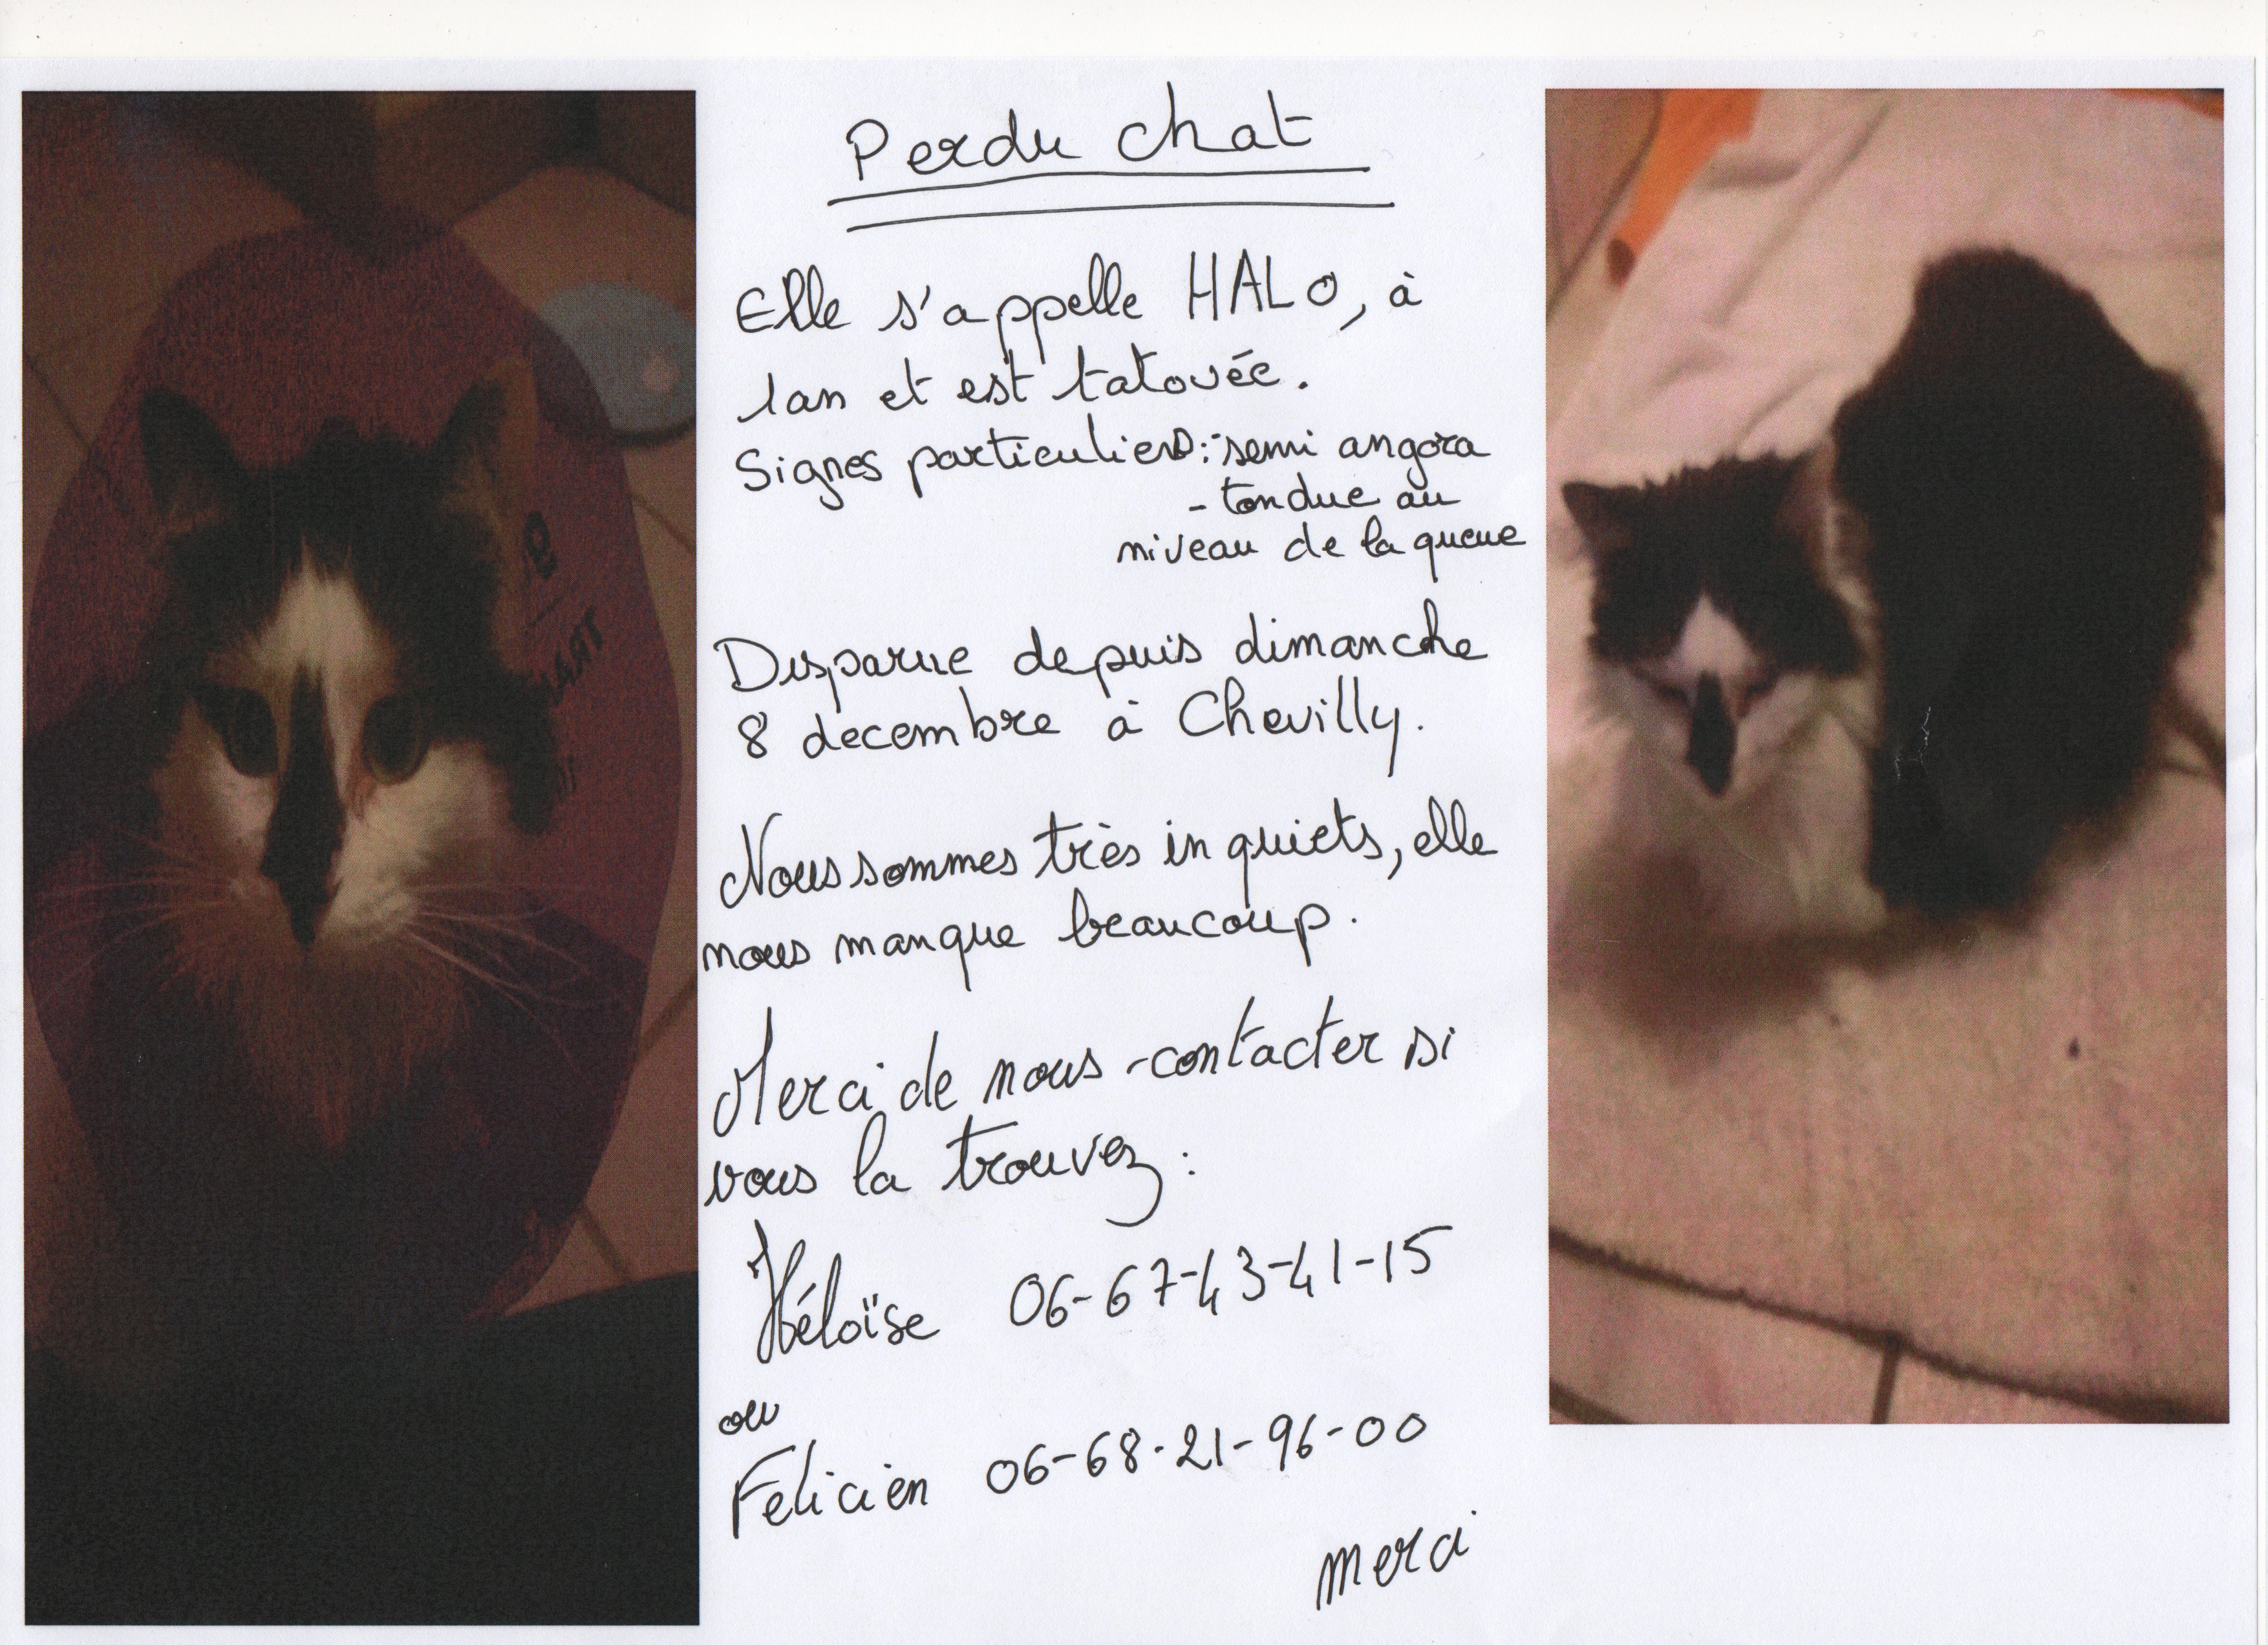 Perdu chat
Elle s'appelle HALO, à
1an et est tatouée.
Signes particuliers: - semi angora
- tondue au
niveau de la queue
Disparue depuis dimanche
8 decembre à Chevilly.
Nous sommes très inquiets, elle
nous manque beaucoup.
Merci de nous contacter si
vous la trouvez :
Héloïse 06-67-43-41-15
ou
Felicien 06-68-21-96-00
merci